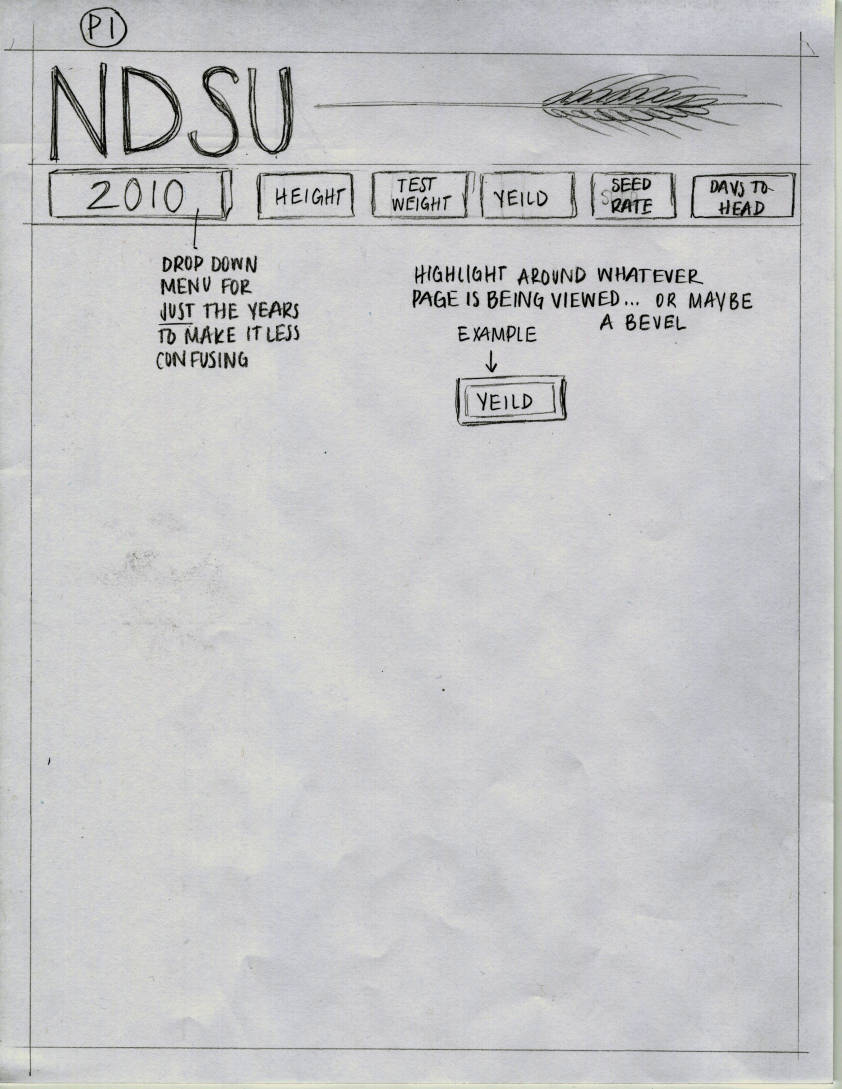 P1
NDSU
2010
HEIGHT
TEST
WEIGHT
YEILD
SEED
RATE
DAYS TO
HEAD
DROP DOWN
MENU FOR
JUST THE YEARS
TO MAKE IT LESS
CONFUSING
HIGHLIGHT AROUND WHATEVER
PAGE IS BEING VIEWED... OR MAYBE
A BEVEL
EXAMPLE
YEILD